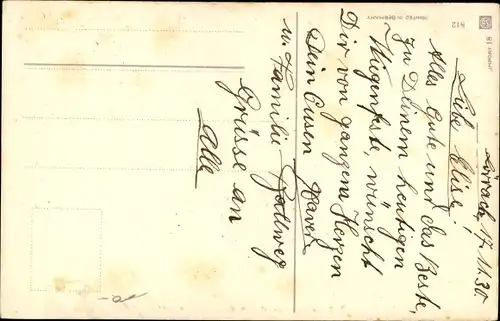 Lörrach, 17.11.30.
Liebe Elise!
Alles Gute und das Beste,
zu Deinem heutigen
Wiegenfeste, wünscht
Dir von ganzem Herzen
Dein Cusen Xaver
u. Familie
Grüsse an
Alle
PRINTED IN GERMANY
812
18